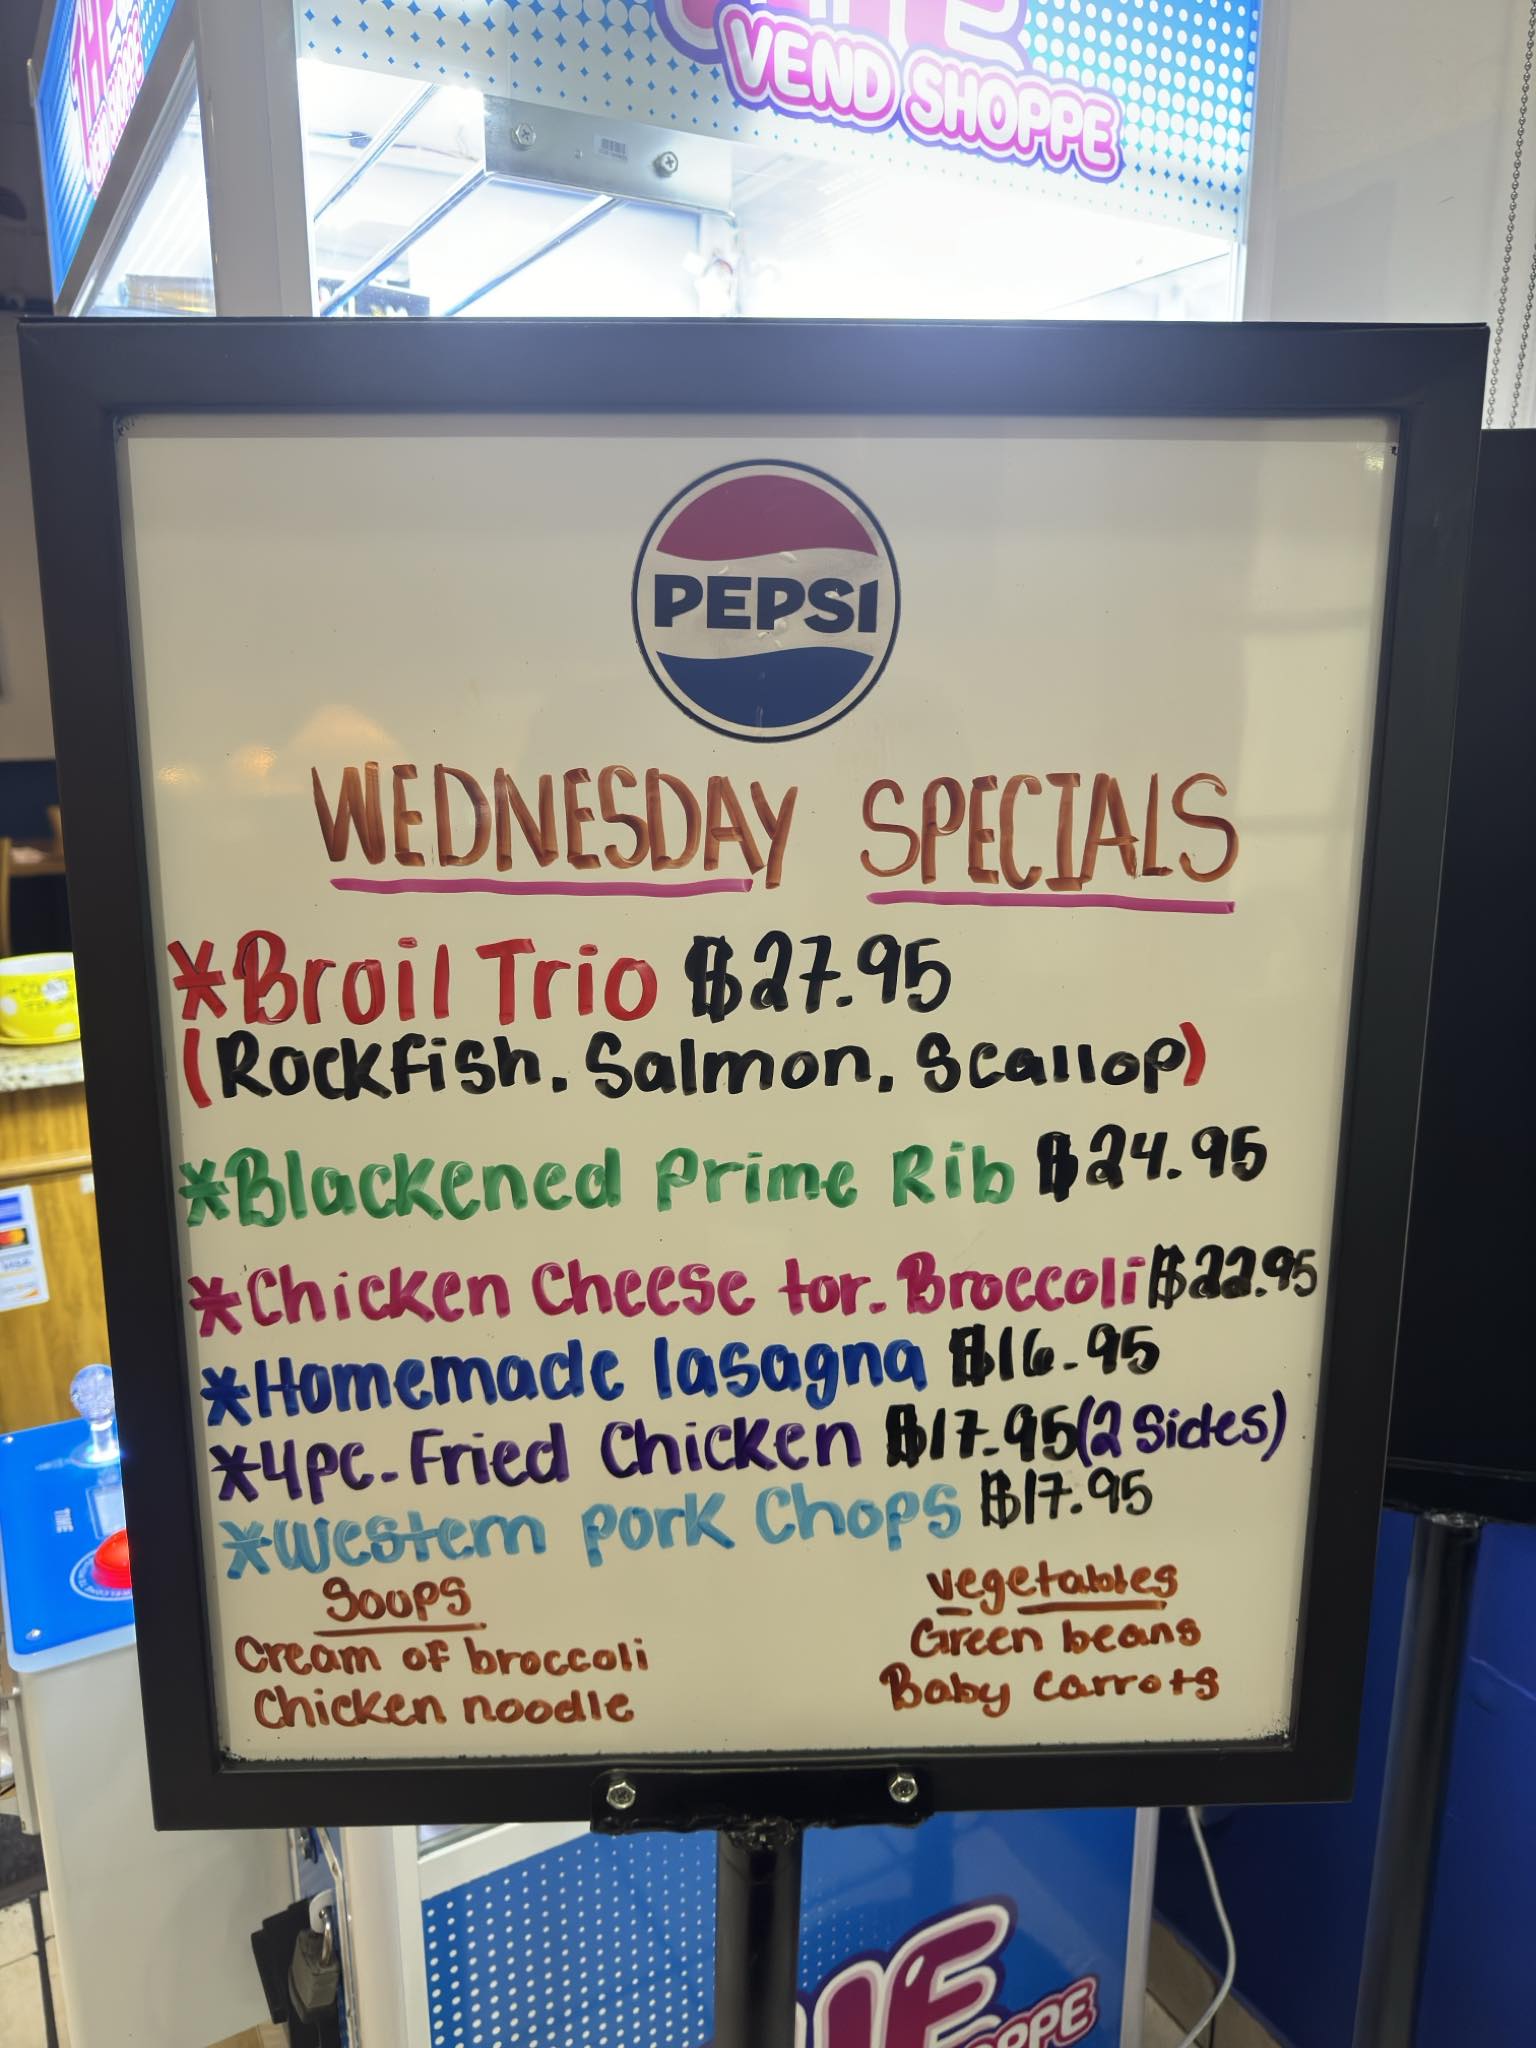 VEND SHOPPE
PEPSI
WEDNESDAY SPECIALS
*Broil Trio $27.95
(Rockfish. Salmon. Scallop)
*Blackened Prime Rib $24.95
*Chicken Cheese tor. Broccoli $22.95
*Homemade lasagna $16.95
*4pc. Fried Chicken $17.95 (2 Sides)
*Western pork Chops $17.95
Soups
Cream of broccoli
Chicken noodle
vegetables
Green beans
Baby carrots